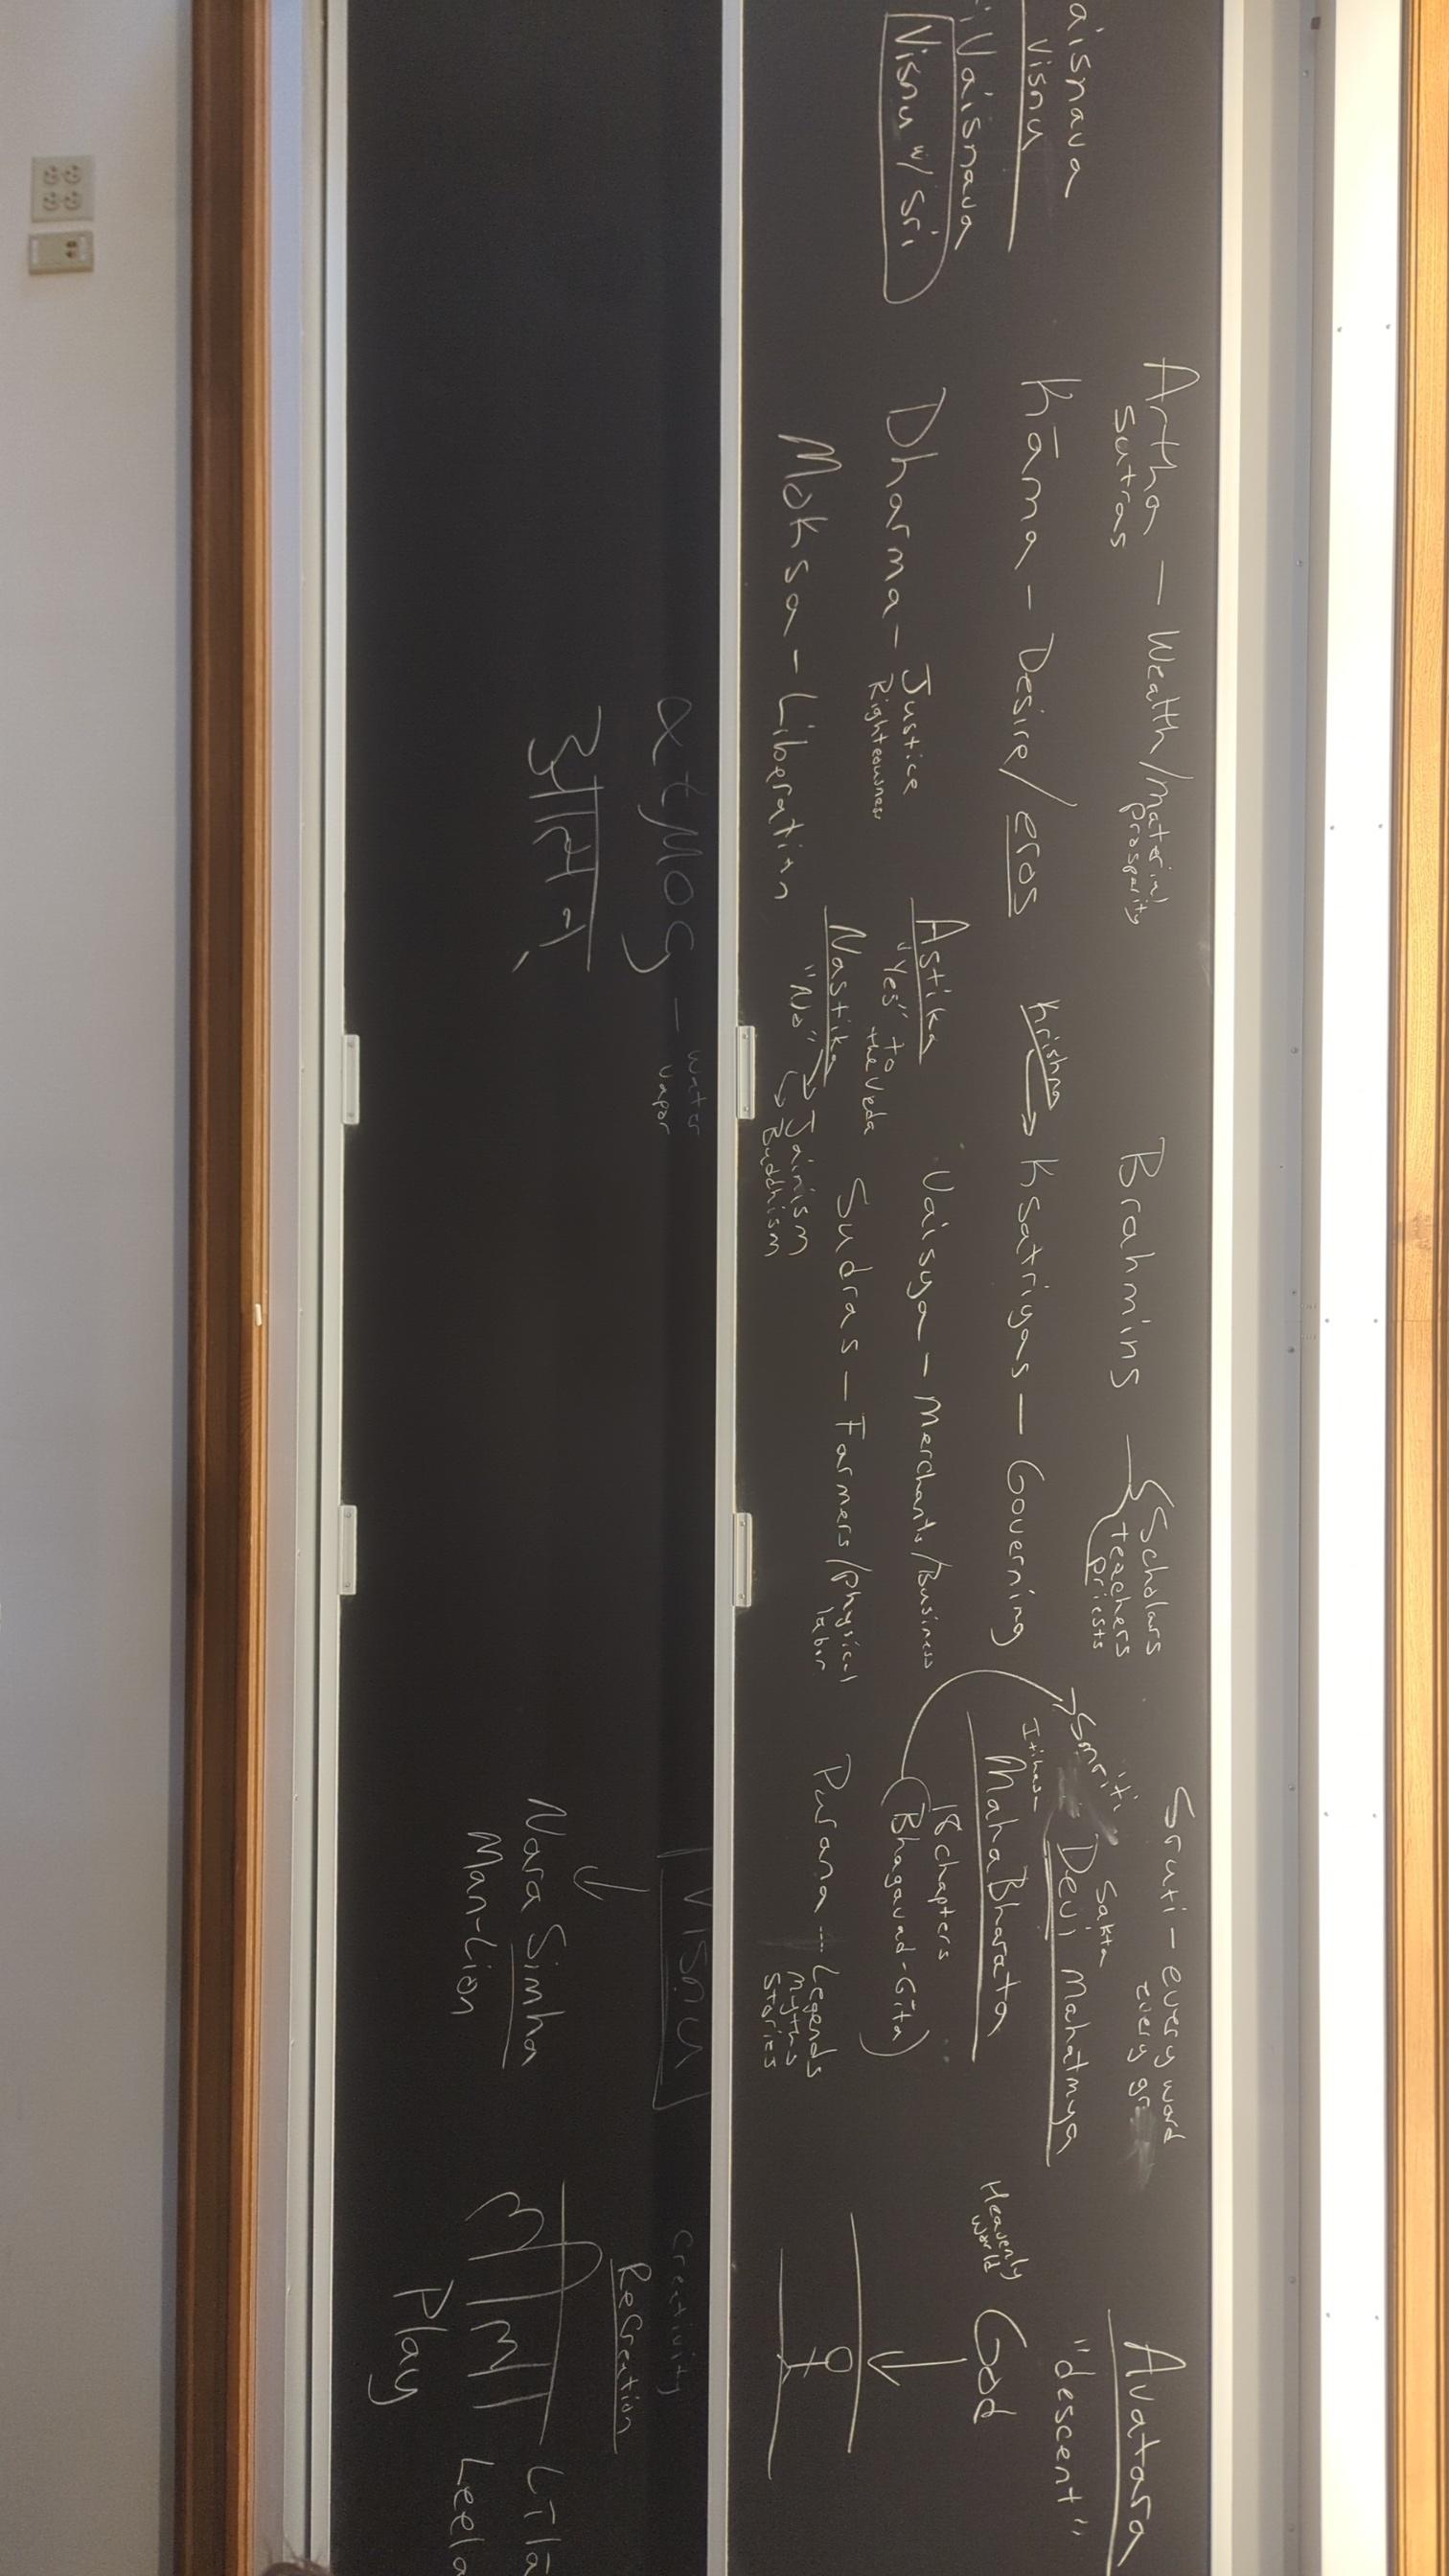 aisnava
Visnu
i Vaisnava
Visnu w/ Sri
Artha — Wealth/material prosperity
Sutras
Kāma – Desire/eros
Dharma – Justice
Righteousness
Moksa – Liberation
Krishna
Astika
"Yes" to the Veda
Nastika
"No"
Jainism
Buddhism
Brahmins — Scholars
teachers
priests
Ksatriyas — Governing
Vaisya – Merchants/Business
Sudras – Farmers/physical labor
Sruti – every word
every gr
Smriti
Sakta
Devi Mahatmya
Itihasa
MahaBharata
18 chapters
(Bhagavad-Gīta)
Purana — Legends
Myths
Stories
Avatara
"descent"
Heavenly world
God
ατμος – water vapor
आत्मन्
Visnu
Nara Simha
Man-Lion
Creativity
ReCreation
लीला
Līlā
Leela
Play